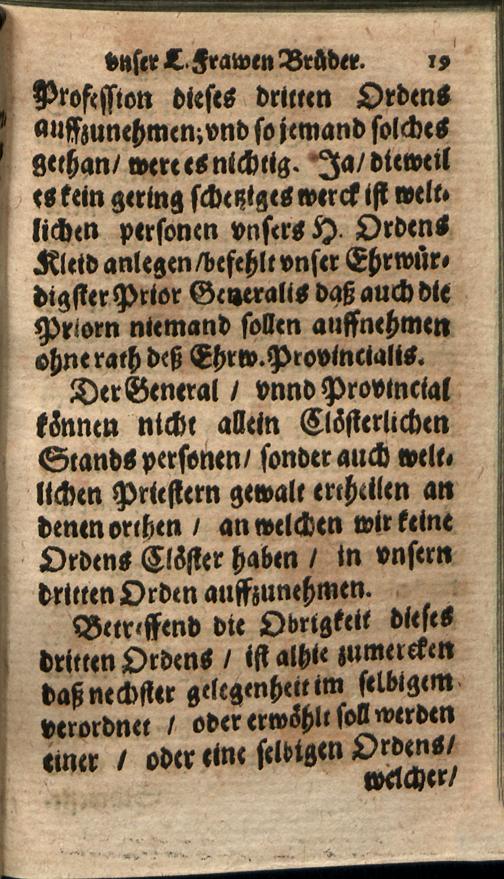 vnser L. Frawen Brüder. 19
Profession dieses dritten Ordens
auffzunehmen; vnd so jemand solches
gethan / were es nichtig. Ja / dieweil
es kein gering schetziges werck ist welt-
lichen personen vnsers H. Ordens
Kleid anlegen / befehlt vnser Ehrwür-
digster Prior Generalis daß auch die
Priorn niemand sollen auffnehmen
ohne rath deß Ehrw. Provincialis.
Der General / vnnd Provincial
können nicht allein Clösterlichen
Stands personen / sonder auch welt-
lichen Priestern gewalt ertheilen an
denen orthen / an welchen wir keine
Ordens Clöster haben / in vnsern
dritten Orden auffzunehmen.
Betreffend die Obrigkeit dieses
dritten Ordens / ist alhie zumercken
daß nechster gelegenheit im selbigem
verordnet / oder erwöhlt soll werden
einer / oder eine selbigen Ordens /
welcher /